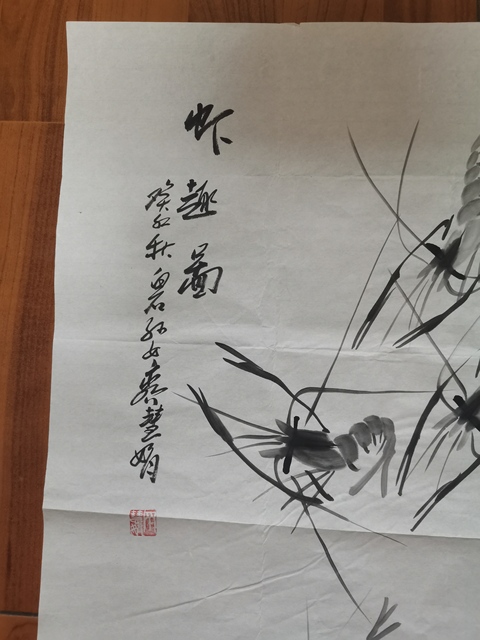 虾趣圖
癸巳秋白石孙女齐慧娟